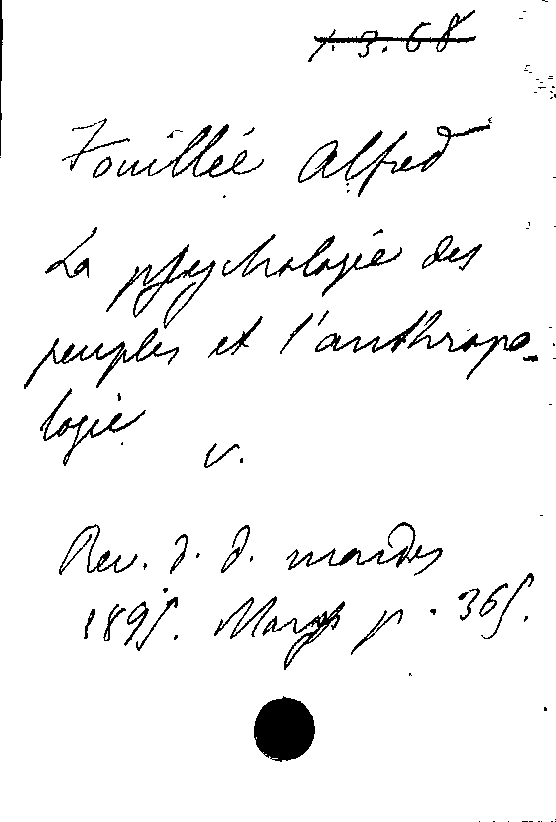 1. 3. 68
Fouillée Alfred
La psychologie des
peuples et l'anthropo-
logie
v.
Rev. d. d. mondes
1895. Mars p. 365.